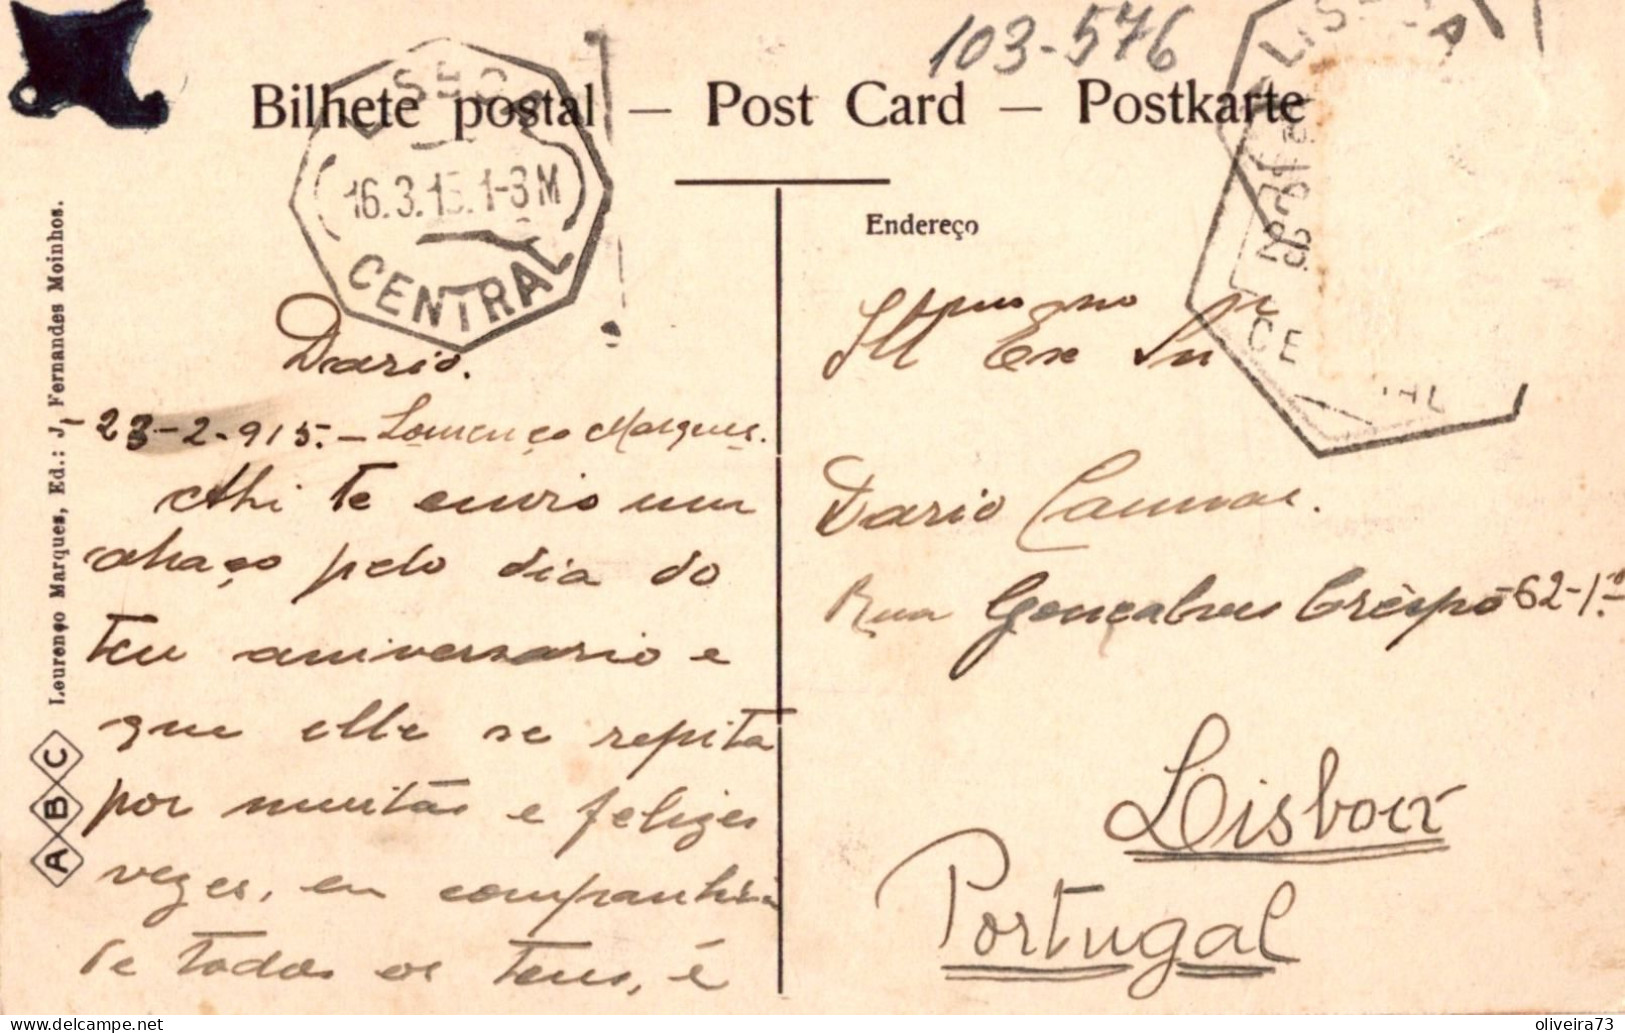 103-576
Bilhete postal — Post Card — Postkarte
LISBOA
16.3.15. 1-3 M
CENTRAL
Lourenço Marques, Ed.: J. Fernandes Moinhos.
A B C
Dario.
23-2-915. - Lourenço Marques.
Ahi te envio um
abraço pelo dia do
teu aniversario e
que elle se repita
por muitas e felizes
vezes, em companhia
de todos os teus, é
Endereço
Illmo Exmo Snr
Dario Cannas.
Rua Gonçalves Crèspo 62-1.º
Lisboa
Portugal
LISBOA
CE AL
oliveira73